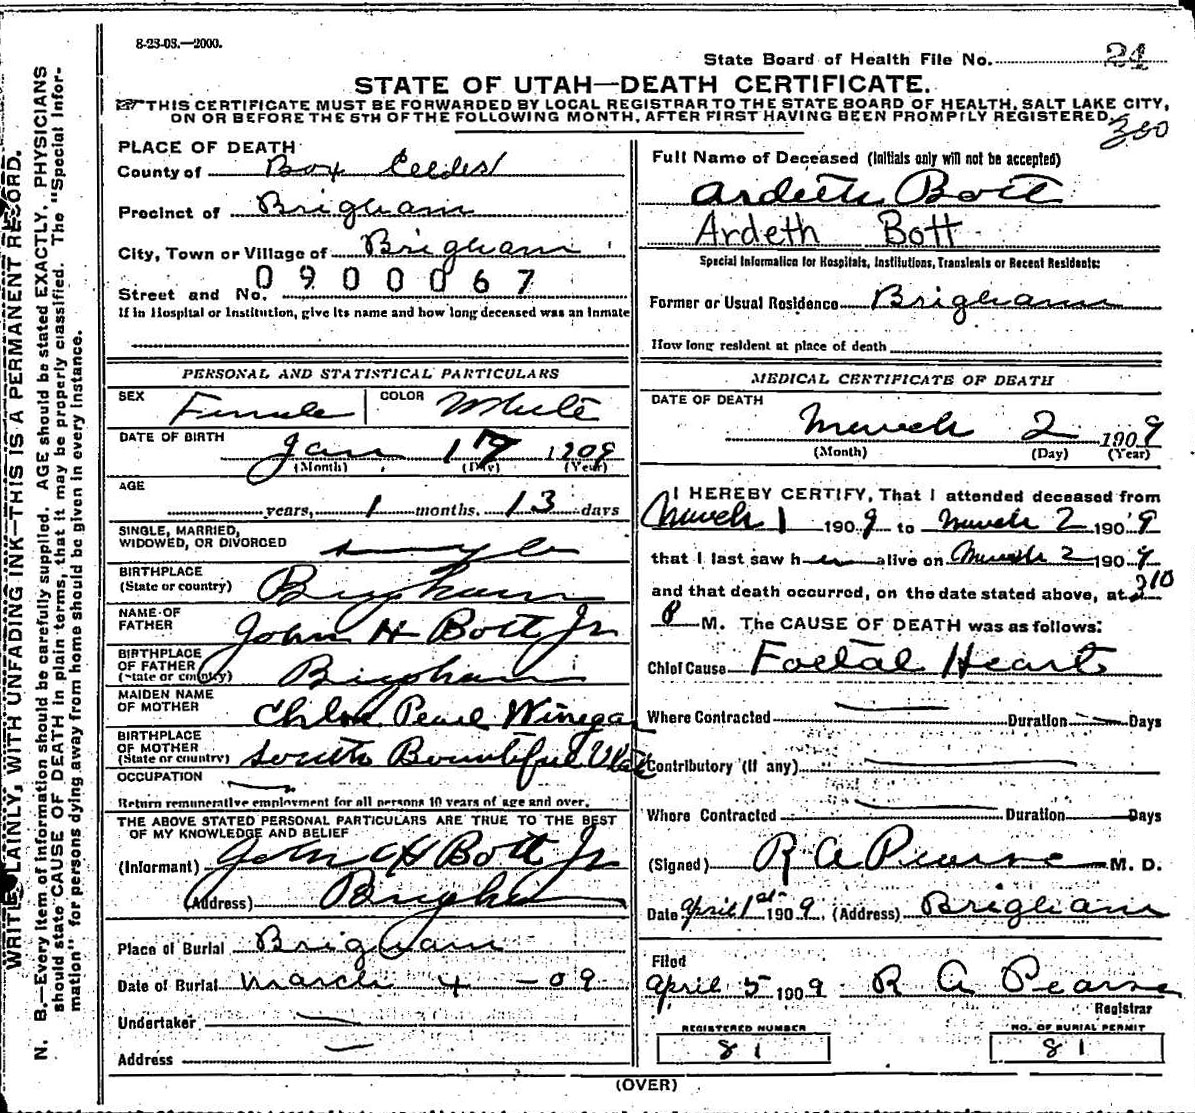 8-23-08.—2000.
State Board of Health File No. 24
STATE OF UTAH—DEATH CERTIFICATE.
THIS CERTIFICATE MUST BE FORWARDED BY LOCAL REGISTRAR TO THE STATE BOARD OF HEALTH, SALT LAKE CITY,
ON OR BEFORE THE 5TH OF THE FOLLOWING MONTH, AFTER FIRST HAVING BEEN PROMPILY REGISTERED.
350
PLACE OF DEATH
County of Box Elder
Precinct of Brigham
City, Town or Village of Brigham
0900067
Street and No.
If in Hospital or Institution, give its name and how long deceased was an inmate
Full Name of Deceased (Initials only will not be accepted)
Ardeth Bott
Ardeth Bott
Special Information for Hospitals, Institutions, Transients or Recent Residents:
Former or Usual Residence Brigham
How long resident at place of death
PERSONAL AND STATISTICAL PARTICULARS
SEX Female COLOR White
DATE OF BIRTH Jan 17 1909
(Month) (Day) (Year)
AGE
years, 1 months, 13 days
SINGLE, MARRIED,
WIDOWED, OR DIVORCED single
BIRTHPLACE
(State or country) Brigham
NAME OF
FATHER John H Bott Jr
BIRTHPLACE
OF FATHER
(State or country) Brigham
MAIDEN NAME
OF MOTHER Chloe Pearl Winegar
BIRTHPLACE
OF MOTHER
(State or country) South Bountiful Utah
OCCUPATION
Return remunerative employment for all persons 10 years of age and over.
THE ABOVE STATED PERSONAL PARTICULARS ARE TRUE TO THE BEST
OF MY KNOWLEDGE AND BELIEF
(Informant) John H Bott Jr
(Address) Brigham
Place of Burial Brigham
Date of Burial March 4 - 09
Undertaker
Address
MEDICAL CERTIFICATE OF DEATH
DATE OF DEATH
March 2 1909
(Month) (Day) (Year)
I HEREBY CERTIFY, That I attended deceased from
March 1 1909 to March 2 1909
that I last saw her alive on March 2 1909
and that death occurred, on the date stated above, at 310
P M. The CAUSE OF DEATH was as follows:
Chief Cause Foetal Heart
Where Contracted Duration Days
Contributory (if any)
Where Contracted Duration Days
(Signed) R A Pearse M. D.
Date April 1st 1909 (Address) Brigham
Filed
April 5 1909 R A Pearse
Registrar
REGISTERED NUMBER
81
NO. OF BURIAL PERMIT
81
(OVER)
WRITE PLAINLY, WITH UNFADING INK—THIS IS A PERMANENT RECORD.
N. B.—Every item of information should be carefully supplied. AGE should be stated EXACTLY, PHYSICIANS
should state CAUSE OF DEATH in plain terms, that it may be properly classified. The "Special Infor-
mation" for persons dying away from home should be given in every instance.